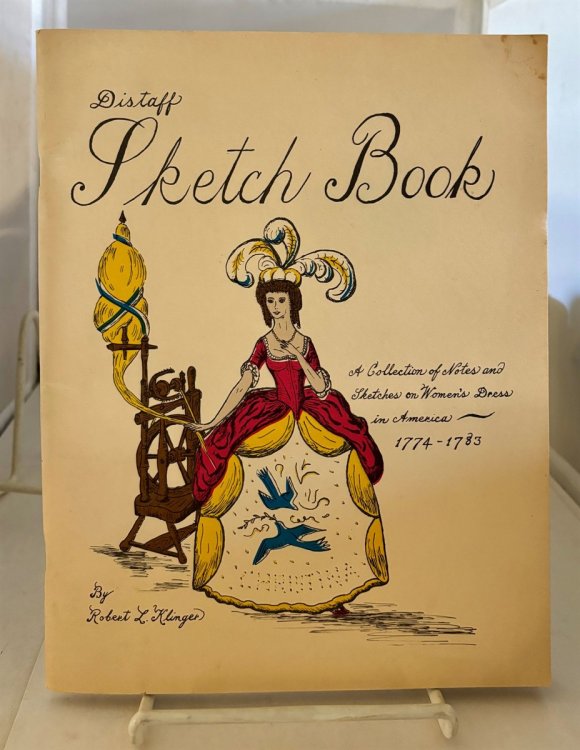 Distaff
Sketch Book
A Collection of Notes and
Sketches on Women's Dress
in America
1774-1783
By
Robert L. Klinger